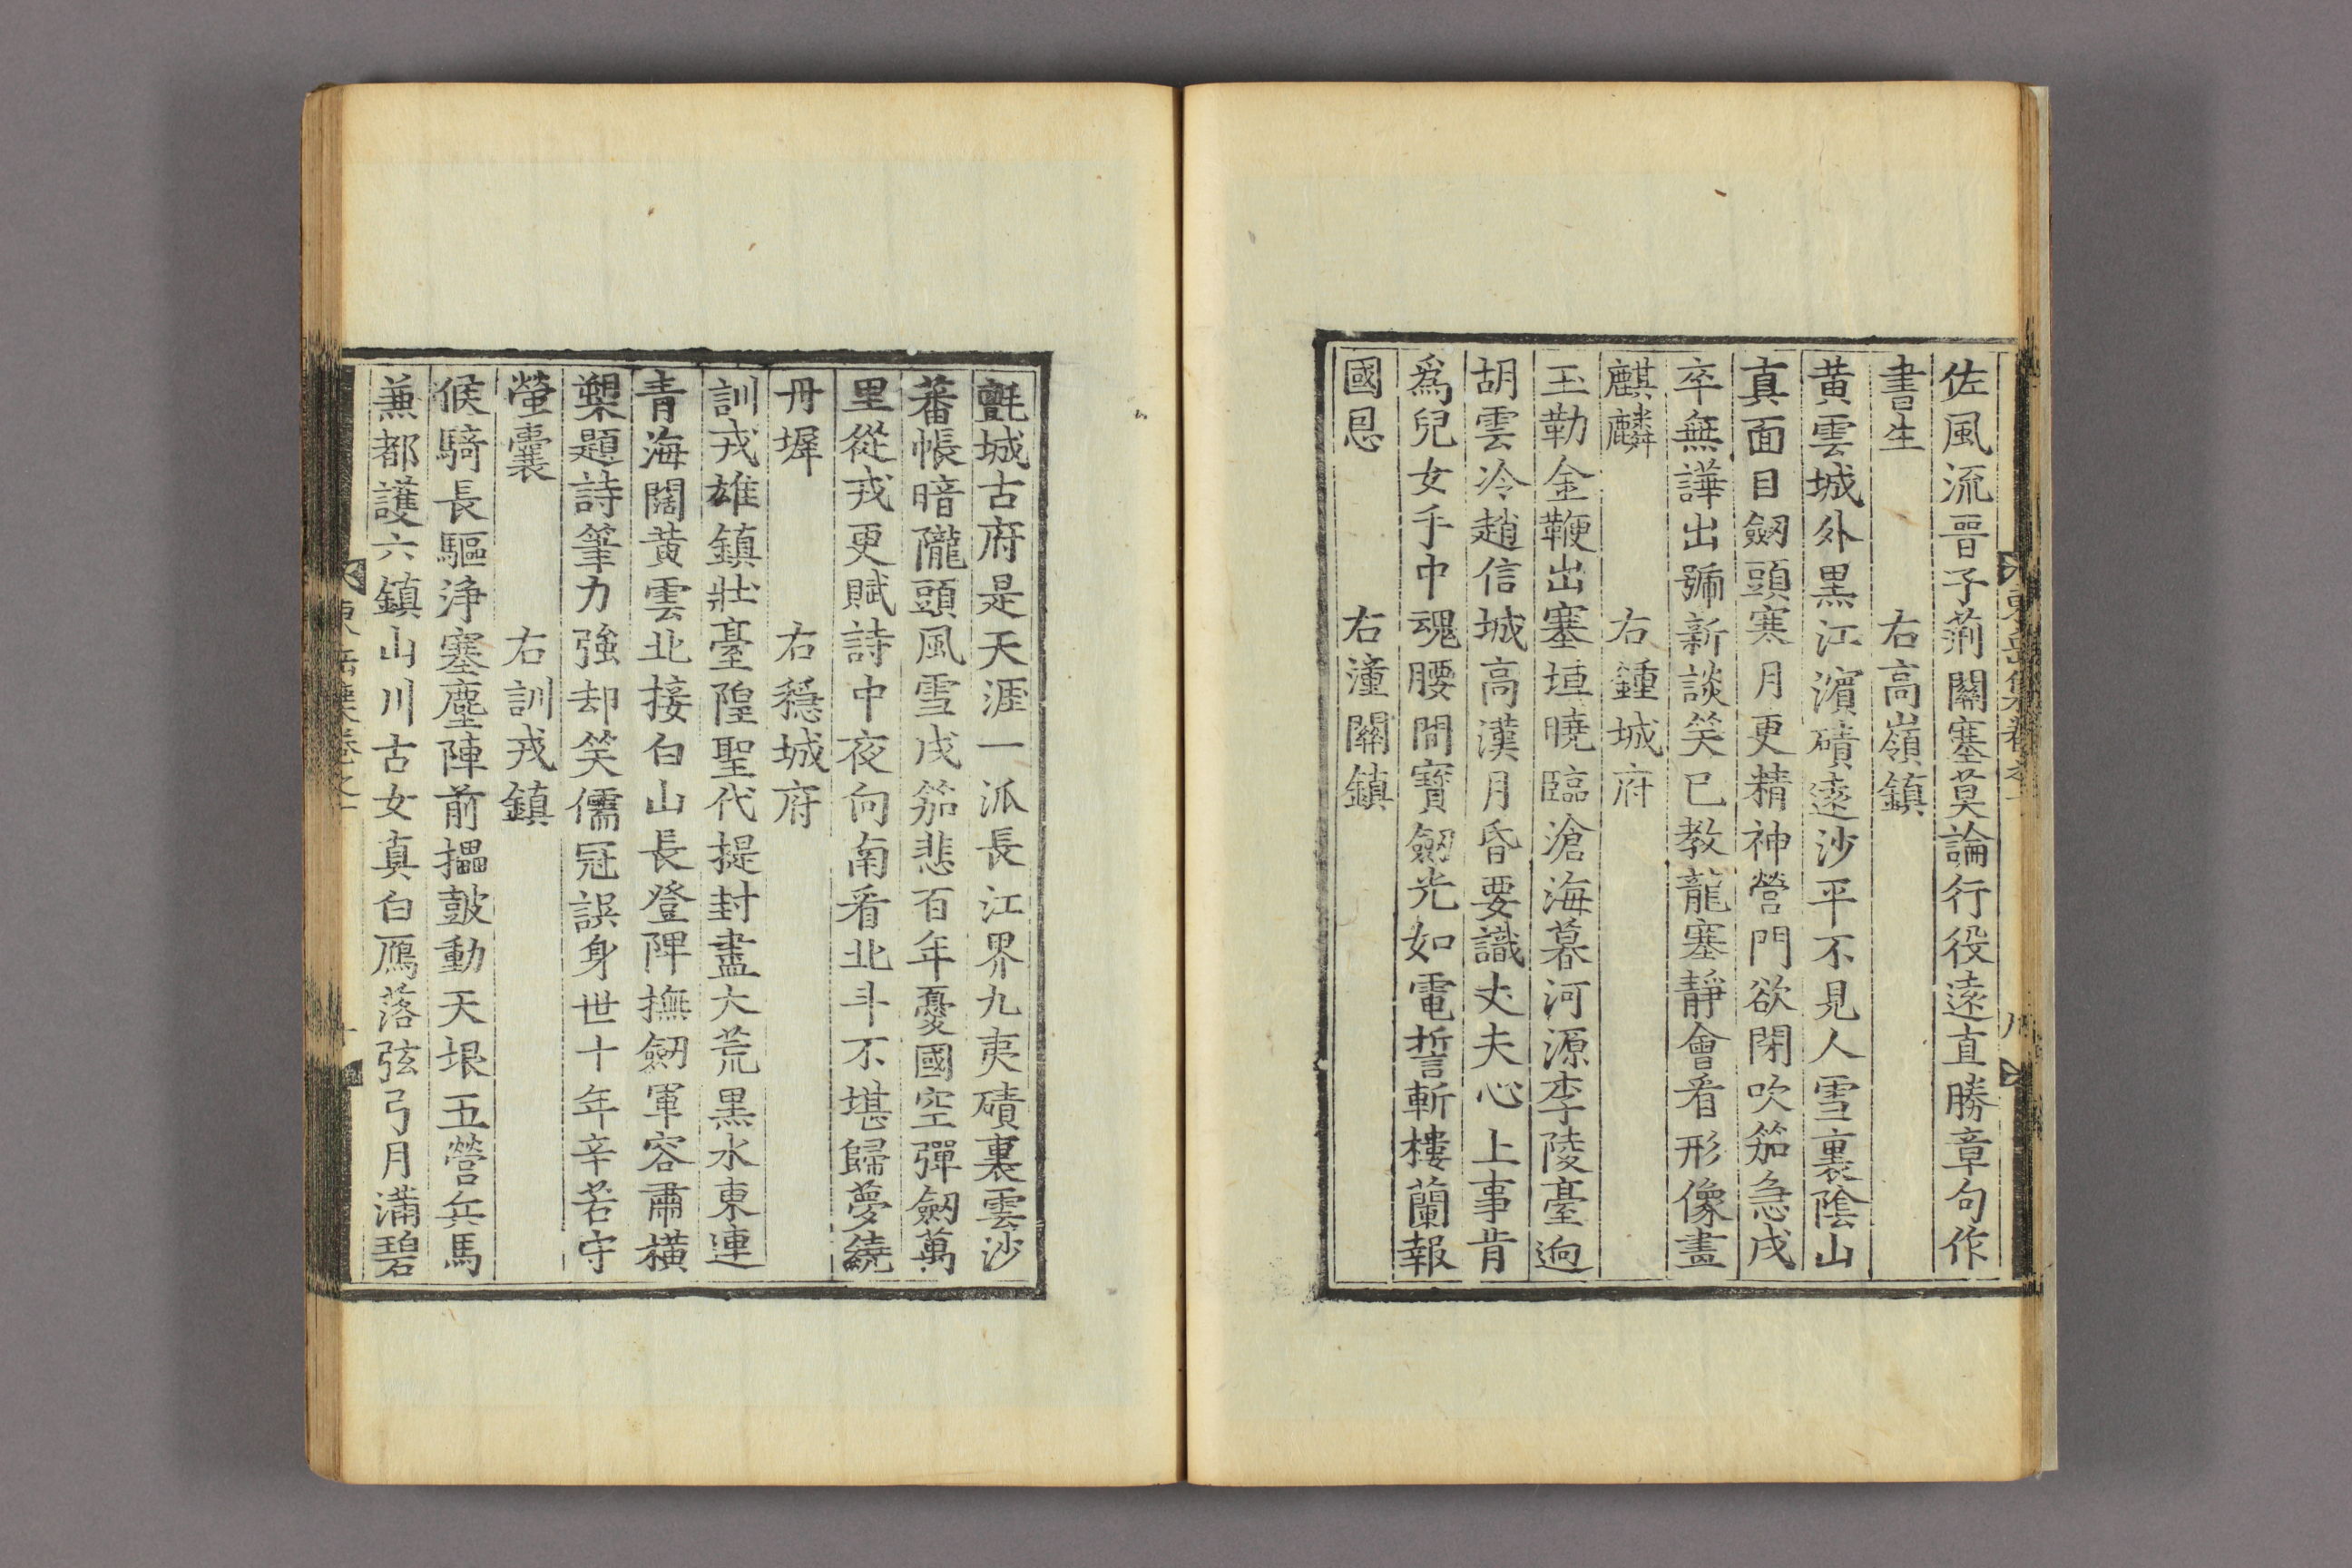 佐風流晉子荊關塞莫論行役遠直勝章句作
書生　　右高嶺鎮
黃雲城外黑江濱磧遠沙平不見人雪裏陰山
真面目劒頭寒月更精神營門欲閉吹笳急戌
卒無譁出號新談笑已教龍塞靜會看形像畫
麒麟　　右鍾城府
玉勒金鞭出塞垣曉臨滄海暮河源李陵臺逈
胡雲冷趙信城高漢月昏要識丈夫心上事肯
爲兒女手中魂腰間寶劒光如電誓斬樓蘭報
國恩　　右潼關鎮
氈城古府是天涯一派長江界九夷磧裏雲沙
蕃帳暗隴頭風雪戌笳悲百年憂國空彈劒萬
里從戎更賦詩中夜向南看北斗不堪歸夢繞
丹墀　　右穩城府
訓戎雄鎮壯臺隍聖代提封盡大荒黑水東連
青海闊黃雲北接白山長登陴撫劒軍容肅橫
槊題詩筆力強却笑儒冠誤身世十年辛苦守
螢囊　　右訓戎鎮
候騎長驅淨塞塵陣前搵鼓動天垠五營兵馬
兼都護六鎮山川古女真白鴈落弦弓月滿碧